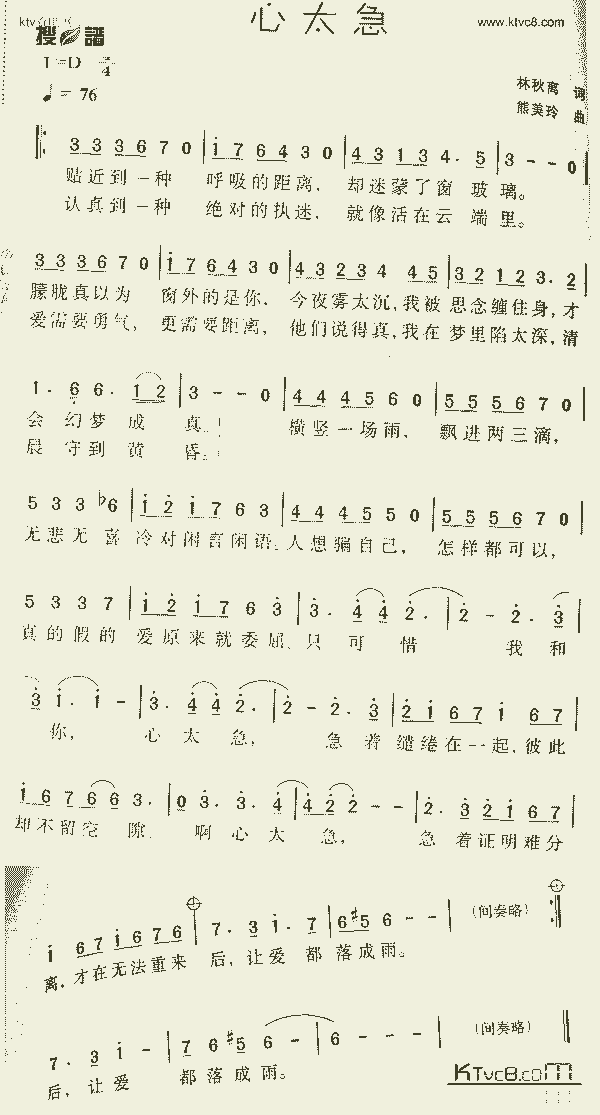 心太急
www.ktvc8.com
搜谱
1=D 4
♩= 76
林秋离 词
熊美玲 曲
3 3 3 6 7 0 | i 7 6 4 3 0 | 4 3 1 3 4 . 5 | 3 - - 0
贴近到一种 呼吸的距离, 却迷蒙了窗 玻璃。
认真到一种 绝对的执迷, 就像活在云 端里。
3 3 3 6 7 0 | i 7 6 4 3 0 | 4 3 2 3 4 4 5 | 3 2 1 2 3 . 2
朦胧真以为 窗外的是你, 今夜雾太沉,我被 思念缠住身,才
爱需要勇气, 更需要距离, 他们说得真,我在 梦里陷太深,清
1 . 6 6 . 1 2 | 3 - - 0 | 4 4 4 5 6 0 | 5 5 5 6 7 0
会 幻梦 成 真。 横竖一场雨, 飘进两三滴,
晨 守到 黄 昏。
5 3 3 b6 | i 2 i 7 6 3 | 4 4 4 5 5 0 | 5 5 5 6 7 0
无悲无喜 冷对闲言闲语。人想骗自己, 怎样都可以,
5 3 3 7 | i 2 i 7 6 3 | 3 . 4 4 2 . | 2 - 2 . 3
真的假的 爱原来就委屈、只 可 惜 我 和
3 i . i - | 3 . 4 4 2 . | 2 - 2 . 3 | 2 i 6 7 i 6 7
你, 心 太 急, 急 着 缱绻在一起,彼此
i 6 7 6 6 3 . | 0 3 . 3 . 4 | 4 2 2 - - | 2 . 3 2 i 6 7
却不留空 隙 啊心 太 急, 急 着证明难分
i 6 7 i 6 7 6 | 7 . 3 i . 7 | 6 #5 6 - - | (间奏略)
离,才在无法重来 后,让爱 都 落成雨。
7 . 3 i - | 7 6 #5 6 - | 6 - - - | (间奏略)
后,让 爱 都落成雨。
KTvc8.com